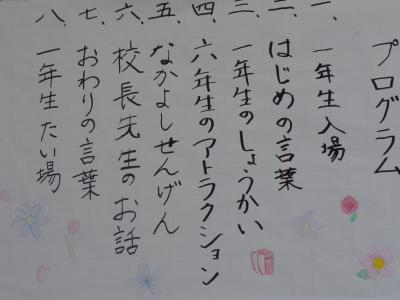 プログラム
一、一年生入場
二、はじめの言葉
三、一年生のしょうかい
四、六年生のアトラクション
五、なかよしせんげん
六、校長先生のお話
七、おわりの言葉
八、一年生たい場